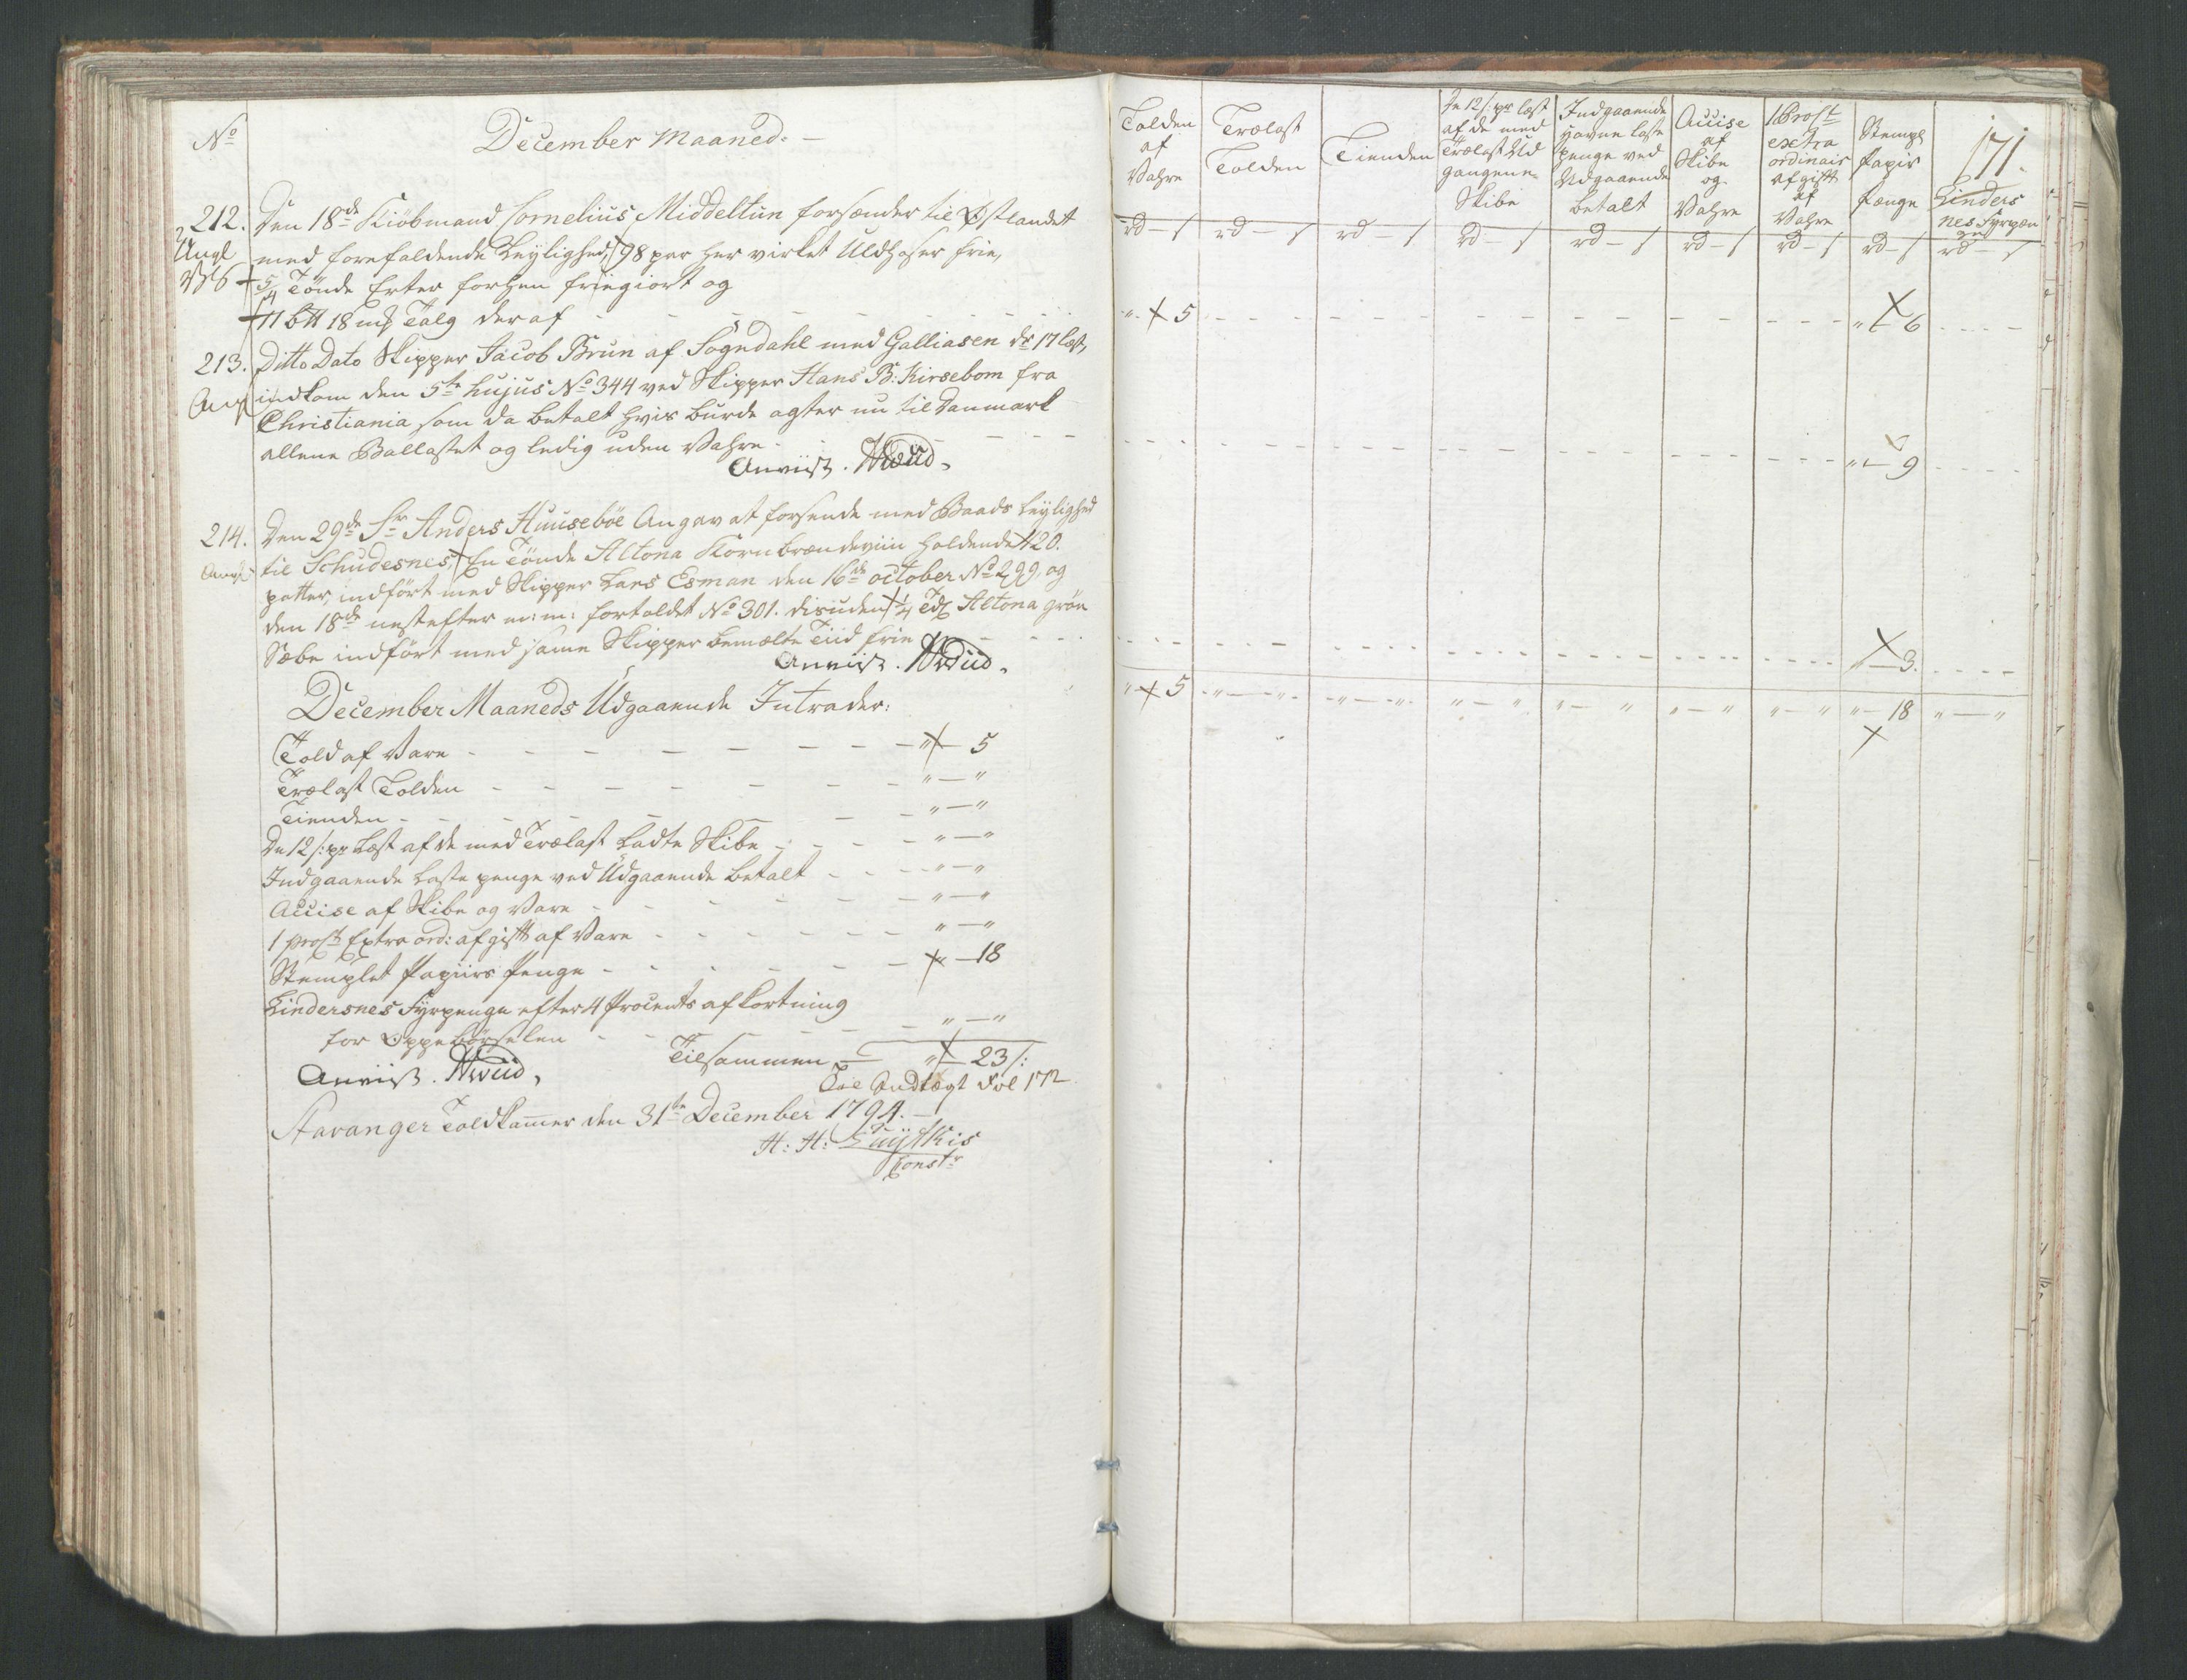 No
December Maaned. —
212. Den 18de Kiöbmand Cornelius Middeltun forsender til Østlandet
med forefaldende Leylighed, 98 par her virket Uldhoser frie,
5/4 Tönde Erter forhen friegiort og
11 btt 18 mk Talg deraf - - - - - - - -
213. Ditto Dato Skipper Jacob Brun af Sogndahl med Galliasen dr 17 læst,
indkom den 5te hujus No 344 ved Skipper Hans B: Kirsebom fra
Christiania som da betalt hvis burde agter nu til Danmark
allene Ballastet og ledig uden Vahre - - - -
Anviist.
214. Den 29de Sr Anders Huuseböe Angav at forsende med Baads Leylighed
til Schudesnes, En Tönde Altona Kornbrændeviin holdende 120.
potter, indfört med Skipper Lars Esman den 16de october No 299, og
den 18de nestefter m: m: fortoldet No 301. disuden 1/4 Td Altona grön
Sæbe indfört med same Skipper bemelte Tiid frie - - - -
Anviist.
December Maaneds Udgaaende Intrader:
Told af Vare - - - - - - - " — 5
Trælast Tolden - - - - - - - " — "
Tienden - - - - - - - " — "
De 12 s: pr Læst af de med Trælast Ladte Skibe - - - - " — "
Indgaaende Laste penge ved Udgaaende betalt - - - " — "
Accise af Skibe og Vare - - - - - - " — "
1 proCt Extra ord: afgift af Vare - - - - - - " — "
Stemplet Papiirs Penge - - - - - - " — 18
Lindersnes Fyrpenge efter 4 Procents afkortning
for Oppebörselen - - - - - - " — "
Tilsammen — " — 23 s:
Anviist.
Til Andtægt Fol 172
Stavanger Toldkammer den 31te December 1794. —
H: H:
Constr
Tolden af Vahre
Trælast Tolden
Tienden
De 12 s: pr læst af de med Trælast Udgangene Skibe
Indgaaende Havne laste penge ved Udgaaende betalt
Accise af Skibe og Vahre
1 ProCt extra ordinair afgift af Vahre
Stempl Papir Penge
171.
Linders nes Fyrpæn ge
rd — s rd — s rd — s rd — s rd — s rd — s rd — s rd — s rd — s
" - 5 - - - - - - - - - " — 6 - - - -
- - - - - - - - - " — 9 - - - -
- - - - - - - - - " — 3. - - - -
" — 5 " — " " — " " — " " — " " — " " — " " — 18 " — "